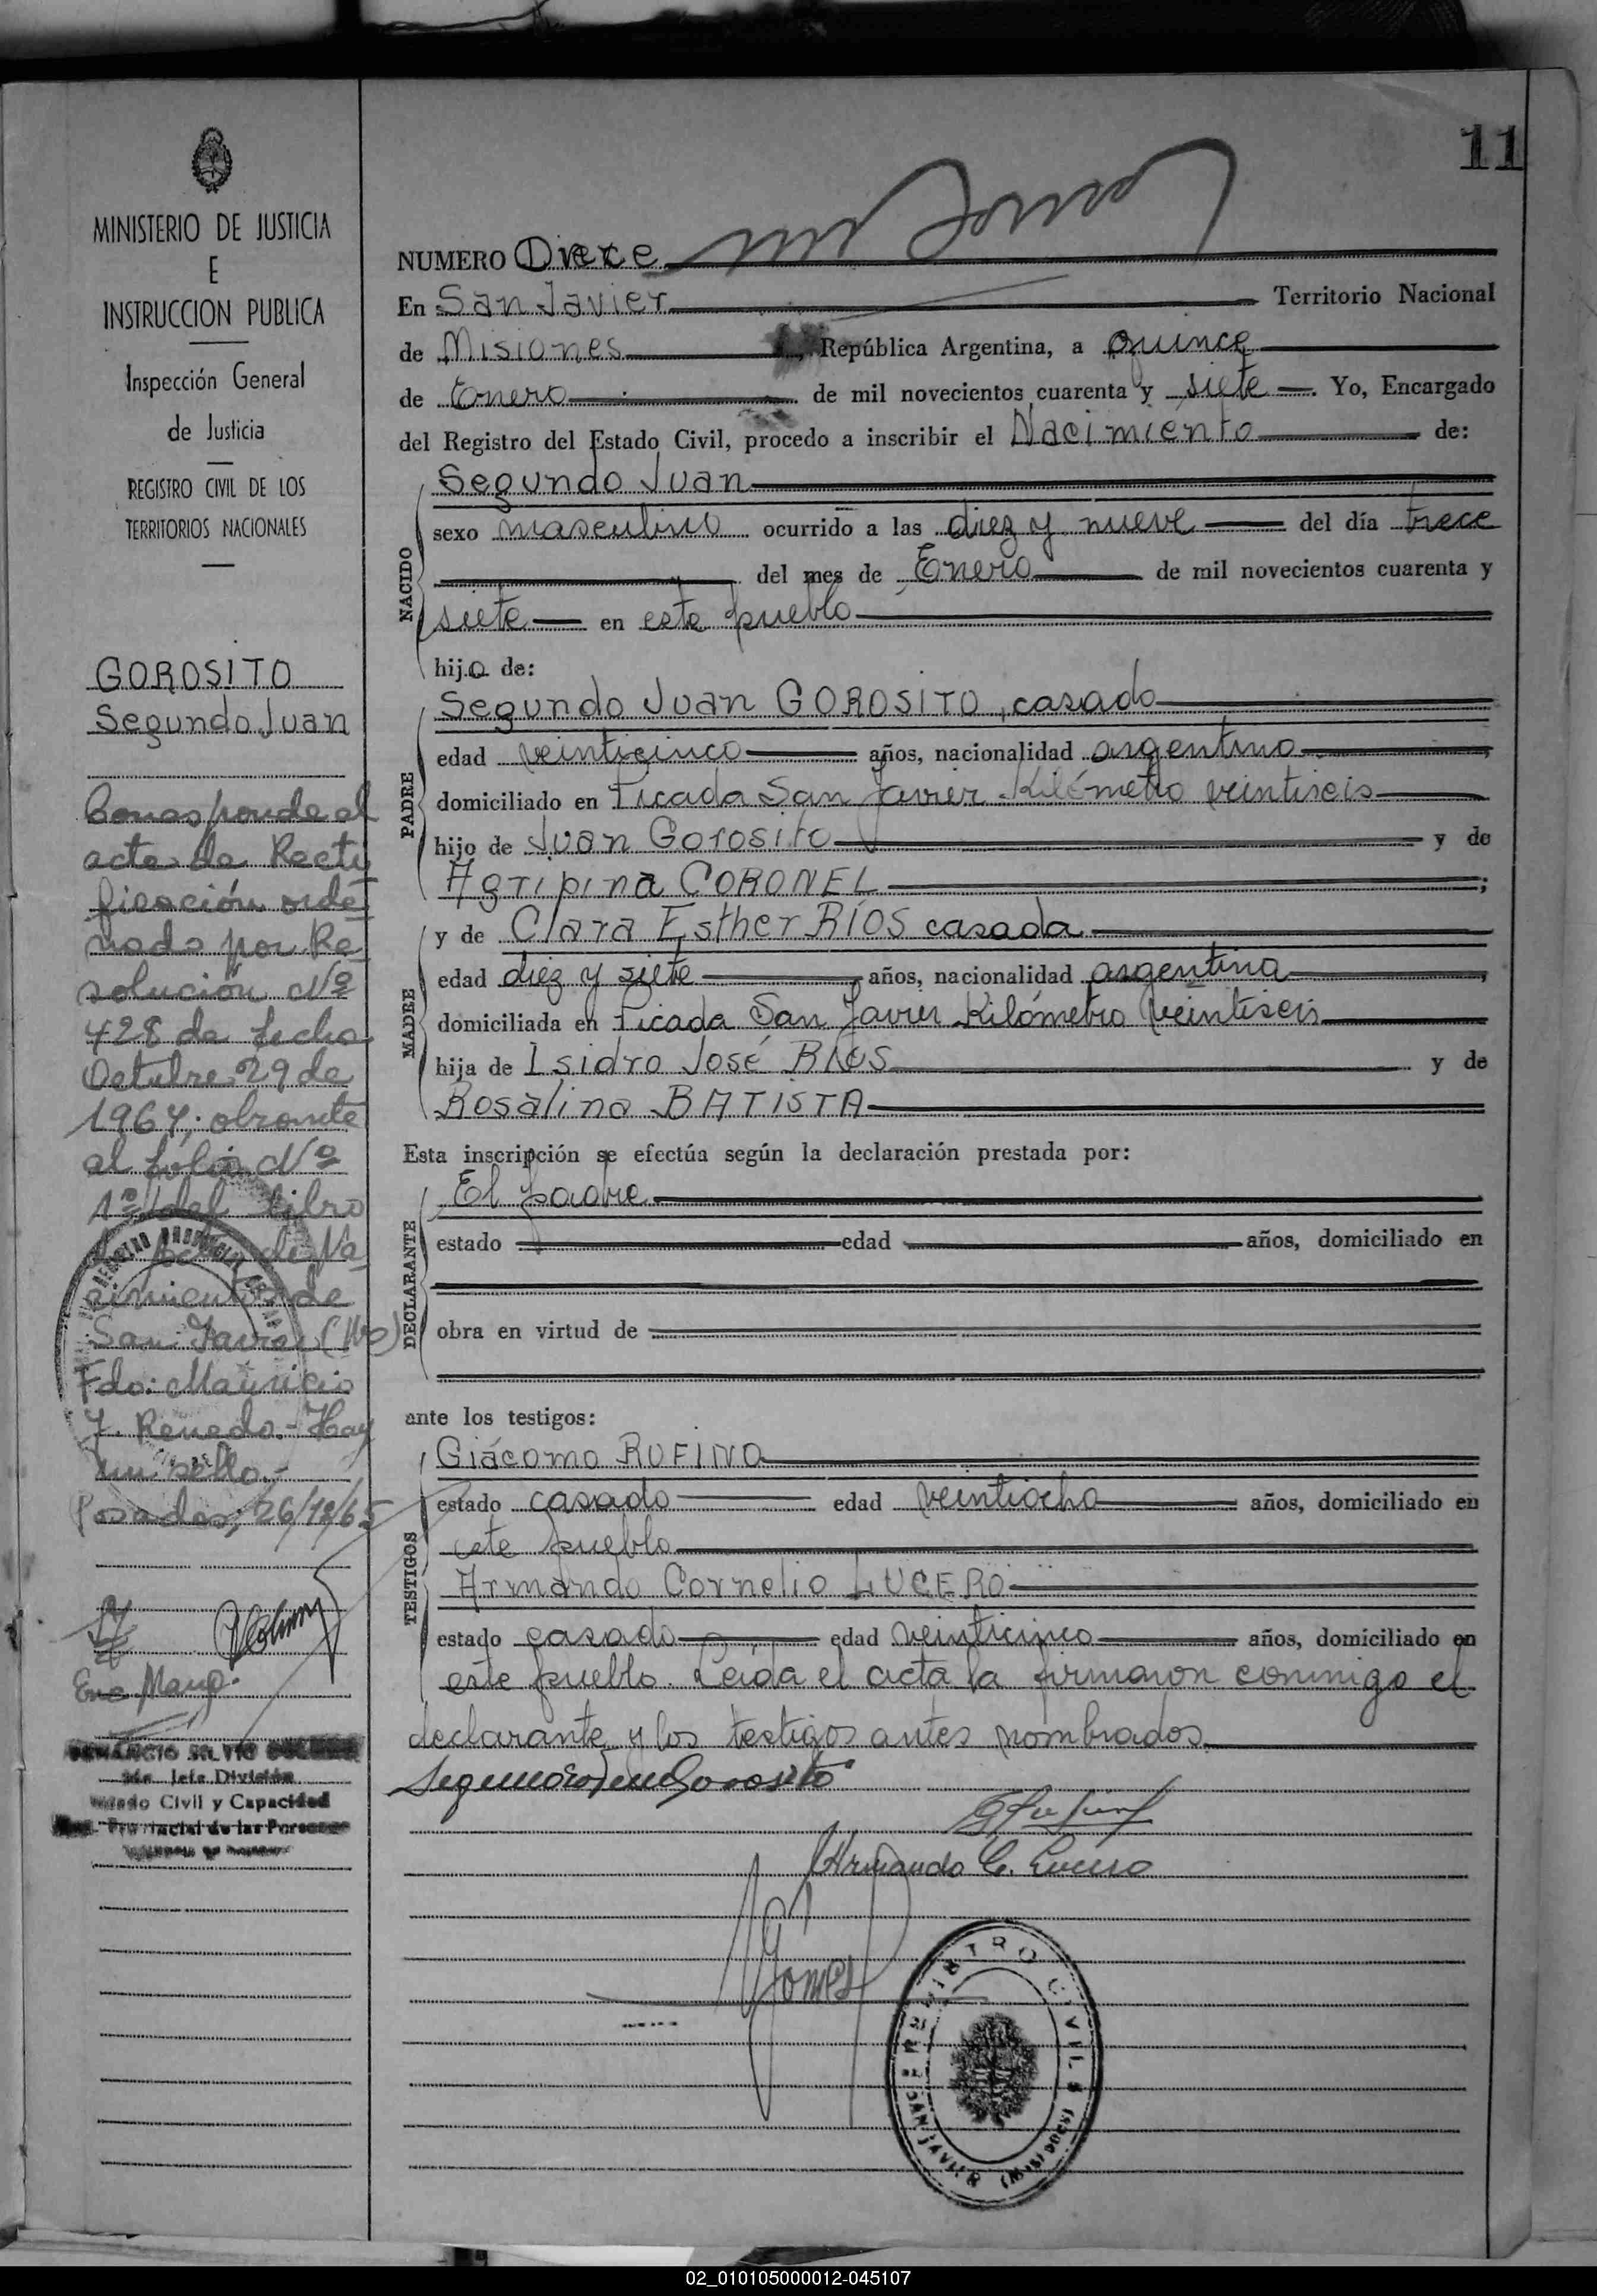 11
MINISTERIO DE JUSTICIA
E
INSTRUCCION PUBLICA
Inspección General
de Justicia
REGISTRO CIVIL DE LOS
TERRITORIOS NACIONALES
GOROSITO
Segundo Juan
Corresponde al
acta de Recti
ficación orde
nada por Re
solución Nº
428 de fecha
Octubre 29 de
1964; obrante
al folio Nº
1º del Libro
de Na
cimientos de
San Javier (Mnes)
Fdo: Mauricio
J. Renedo.- Hay
un sello.-
Posadas, 26/12/65
VENANCIO SILVIO
Jefe División
Estado Civil y Capacidad
Reg. Provincial de las Personas
NUMERO
En San Javier Territorio Nacional
de Misiones, República Argentina, a quince
de Enero de mil novecientos cuarenta y siete. Yo, Encargado
del Registro del Estado Civil, procedo a inscribir el Nacimiento de:
NACIDO
Segundo Juan
sexo masculino ocurrido a las diez y nueve del día trece
del mes de Enero de mil novecientos cuarenta y
siete en este pueblo
hijo de:
PADRE
Segundo Juan GOROSITO, casado
edad veinticinco años, nacionalidad argentino
domiciliado en Picada San Javier Kilómetro veintiseis
hijo de Juan Gorosito y de
Agripina CORONEL;
MADRE
y de Clara Esther RÍOS casada
edad diez y siete años, nacionalidad argentina,
domiciliada en Picada San Javier Kilómetro veintiseis
hija de Isidro José RIOS y de
Rosalina BATISTA
Esta inscripción se efectúa según la declaración prestada por:
DECLARANTE
El padre
estado edad años, domiciliado en
obra en virtud de
ante los testigos:
TESTIGOS
Giácomo RUFINO
estado casado edad veintiocho años, domiciliado en
este pueblo
Armando Cornelio LUCERO
estado casado edad veinticinco años, domiciliado en
este pueblo. Leída el acta la firmaron conmigo el
declarante y los testigos antes nombrados
Segundo Juan Gorosito
Armando C. Lucero
REGISTRO CIVIL
SAN JAVIER (MISIONES)
02_010105000012-045107